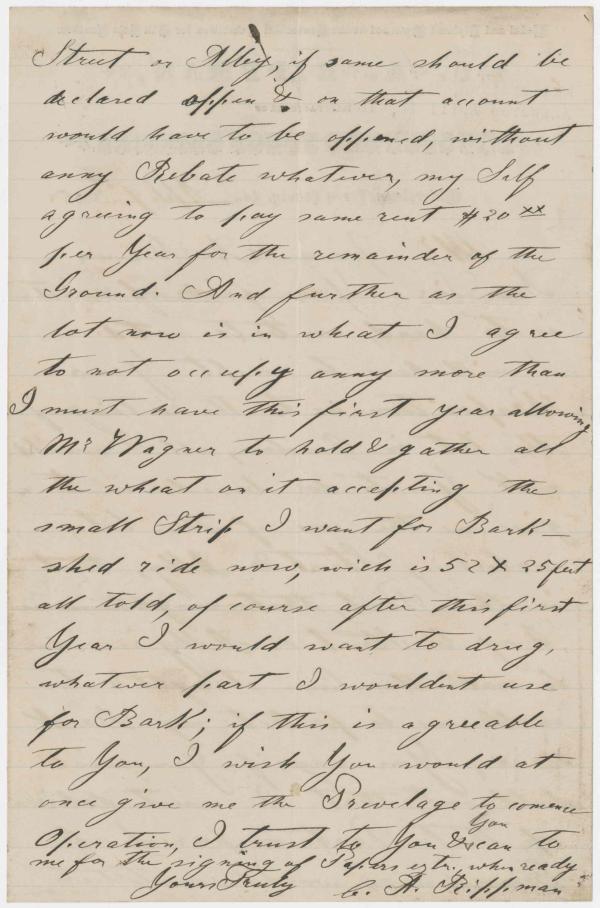 Street or Alley, if same should be
declared oppen & on that account
would have to be oppened, without
anny Rebate whatever, my Self
agreeing to pay same rent $20 xx
per Year for the remainder of the
Ground. And further as the
lot now is in wheat I agree
to not occupy anny more than
I must have this first year allowing
Mr Wagner to hold & gather all
the wheat on it accepting the
small Strip I want for Bark-
shed ride now, wich is 52 X 25 feet
all told, of course after this first
Year I would want to drug,
whatever part I wouldent use
for Bark; if this is agreeable
to You, I wish You would at
once give me the Prevelage to comence
Operation, I trust to You & You can to
me for the signing of Papers extr. when ready
Yours Truly C. A. Rippman